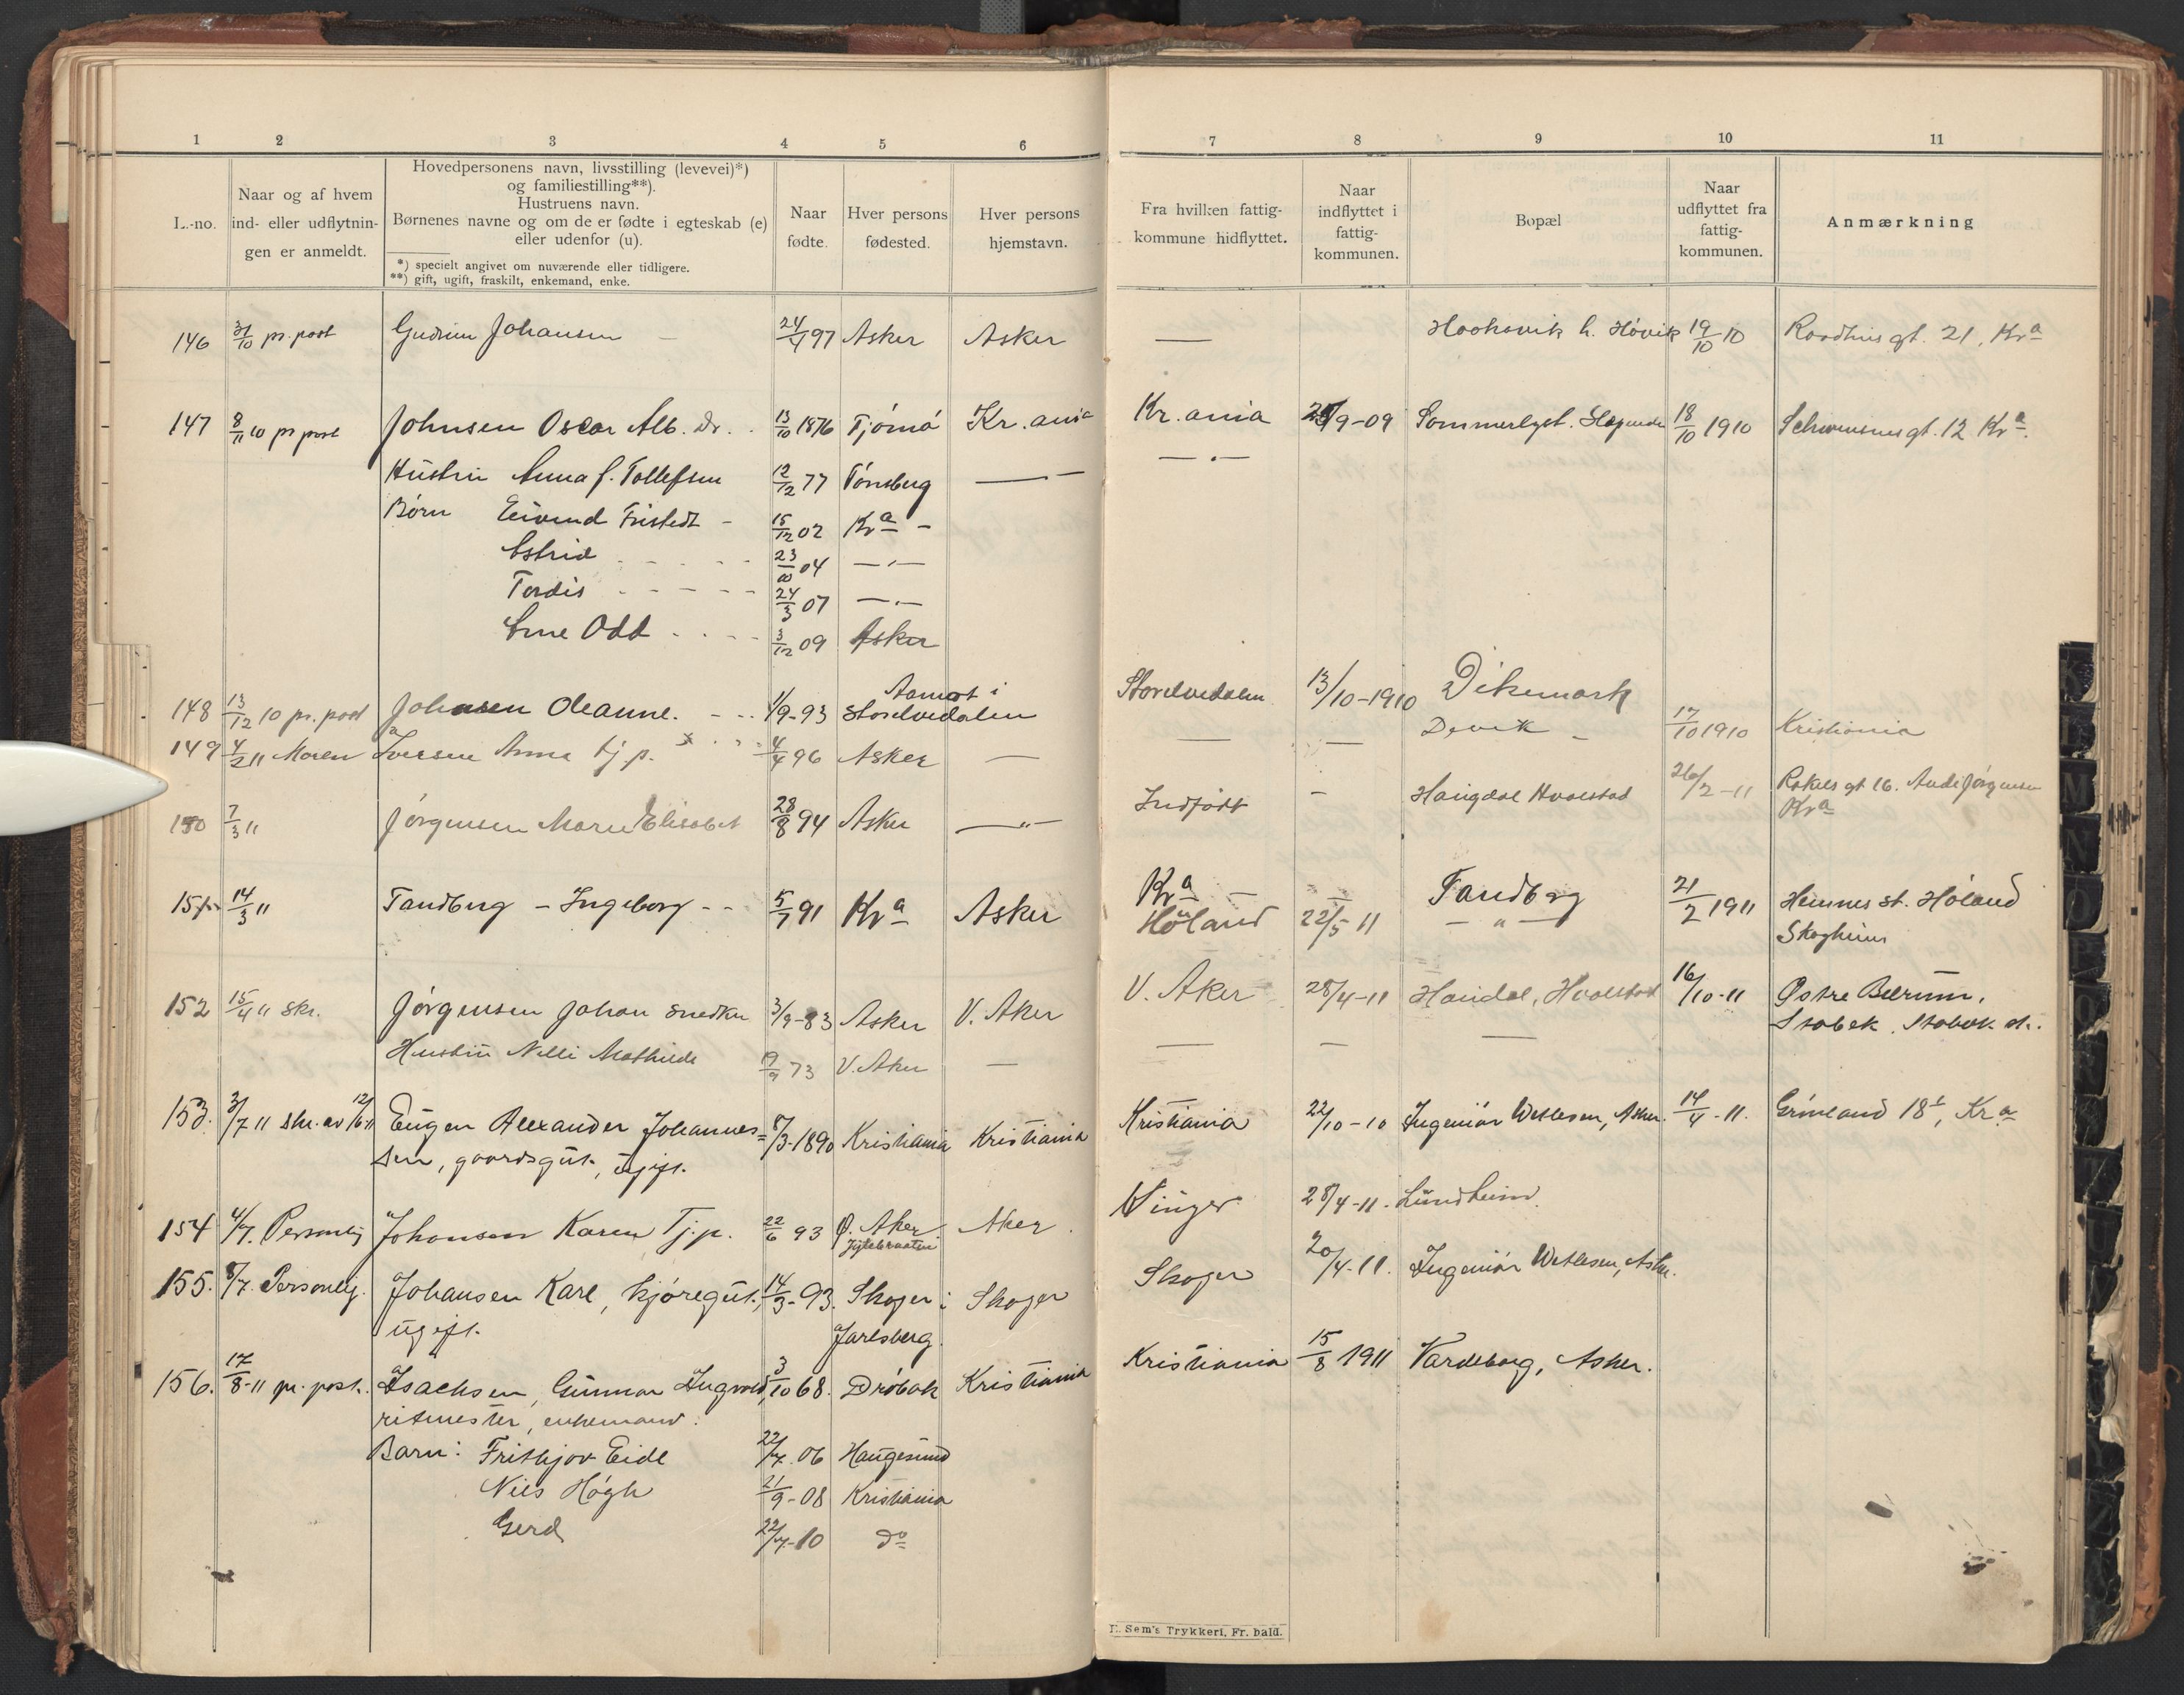 1 2 3 4 5 6 7 8 9 10 11
L.-no.
Naar og af hvem
ind- eller udflytnin-
gen er anmeldt.
Hovedpersonens navn, livsstilling (levevei)*)
og familiestilling**).
Hustruens navn.
Børnenes navne og om de er fødte i egteskab (e)
eller udenfor (u).
*) specielt angivet om nuværende eller tidligere.
**) gift, ugift, fraskilt, enkemand, enke.
Naar
fødte.
Hver persons
fødested.
Hver persons
hjemstavn.
Fra hvilken fattig-
kommune hidflyttet.
Naar
indflyttet i
fattig-
kommunen.
Bopæl
Naar
udflyttet fra
fattig-
kommunen.
Anmærkning
146 31/10 pr. post Gudrun Johansen – 24/4 97 Asker Asker — h. Høvik 19/10 10 Raadhusgt. 21, Kra
147 8/11 10 pr post Johnsen Oscar Alb. Dr. 13/10 1876 Tjømø Kr.ania Kr.ania 9-09 Sommerlyst. 18/10 1910 Schwensensgt. 12 Kra.
Hustru Anna f. Tollefsen 12/12 77 Tønsberg — — " —
Børn Eivind Fristedt – 15/12 02 Kra –
Astrid 23/10 04 — " —
Tordis 24/3 07 — " —
Arne Odd 3/12 09 Asker
Aamot i
148 13/12 10 pr. post Johansen Oleanne. 1/9-93 Storelvedalen Storelvedalen 13/10-1910 Dikemark
149 4/2 11 Moren Iversen Anna tj.p. 4/4 96 Asker — — — Devik – 17/10 1910 Kristiania
150 7/3 11 Jørgensen Marie Elisabet 28/8 94 Asker — " — Indfødt – Haugdal Hvalstad 26/2-11 Rakels gt 16. Jørgensen
Kra
151 14/3 11 Tandberg – Ingeborg -- 5/7 91 Kra Asker Kra — Tandberg 21/2 1911 Hemnes st. Høland
Høland 22/5 11 — " — Skogheim
152 15/4 11 skr. Jørgensen Johan snedker 3/9-83 Asker V. Aker V. Aker 28/4-11 Hvalstad 16/10-11 Østre Bærum,
Stabek. Stabek st.
Hustru Nelli Mathilde 19/9 73 V. Aker — — — —
153. 3/7 11 skr. av 12/6 11 Eugen Alexander Johannes= 8/3-1890 Kristiania Kristiania Kristiania 22/10-10 Ingeniør Wetlesen, Asker. 14/4-11. Grønland 18, Kra
sen, gaardsgut, ugift.
154 4/7. Personlig Johansen Karen Tj.p. 22/6 93 Ø. Aker. Aker. Vinger 28/4-11. Lundheim.
155. 8/7. Personlig. Johansen Karl, kjøregut, 14/3-93. Skoger i Skoger Skoger 20/4-11. Ingeniør Wetlesen, Asker.
ugift. Jarlsberg.
156. 17/8-11 pr. post. Isachsen, Gunnar Ingvald, 3/10 68. Drøbak Kristiania Kristiania 15/8 1911 Vardeborg, Asker.
ritmester, enkemand.
Barn: Frithjov Eide 22/7. 06 Haugesund
Nils Høgh 21/9-08 Kristiania
Gerd 22/7-10 do
E. Sem's Trykkeri, Fr. hald.